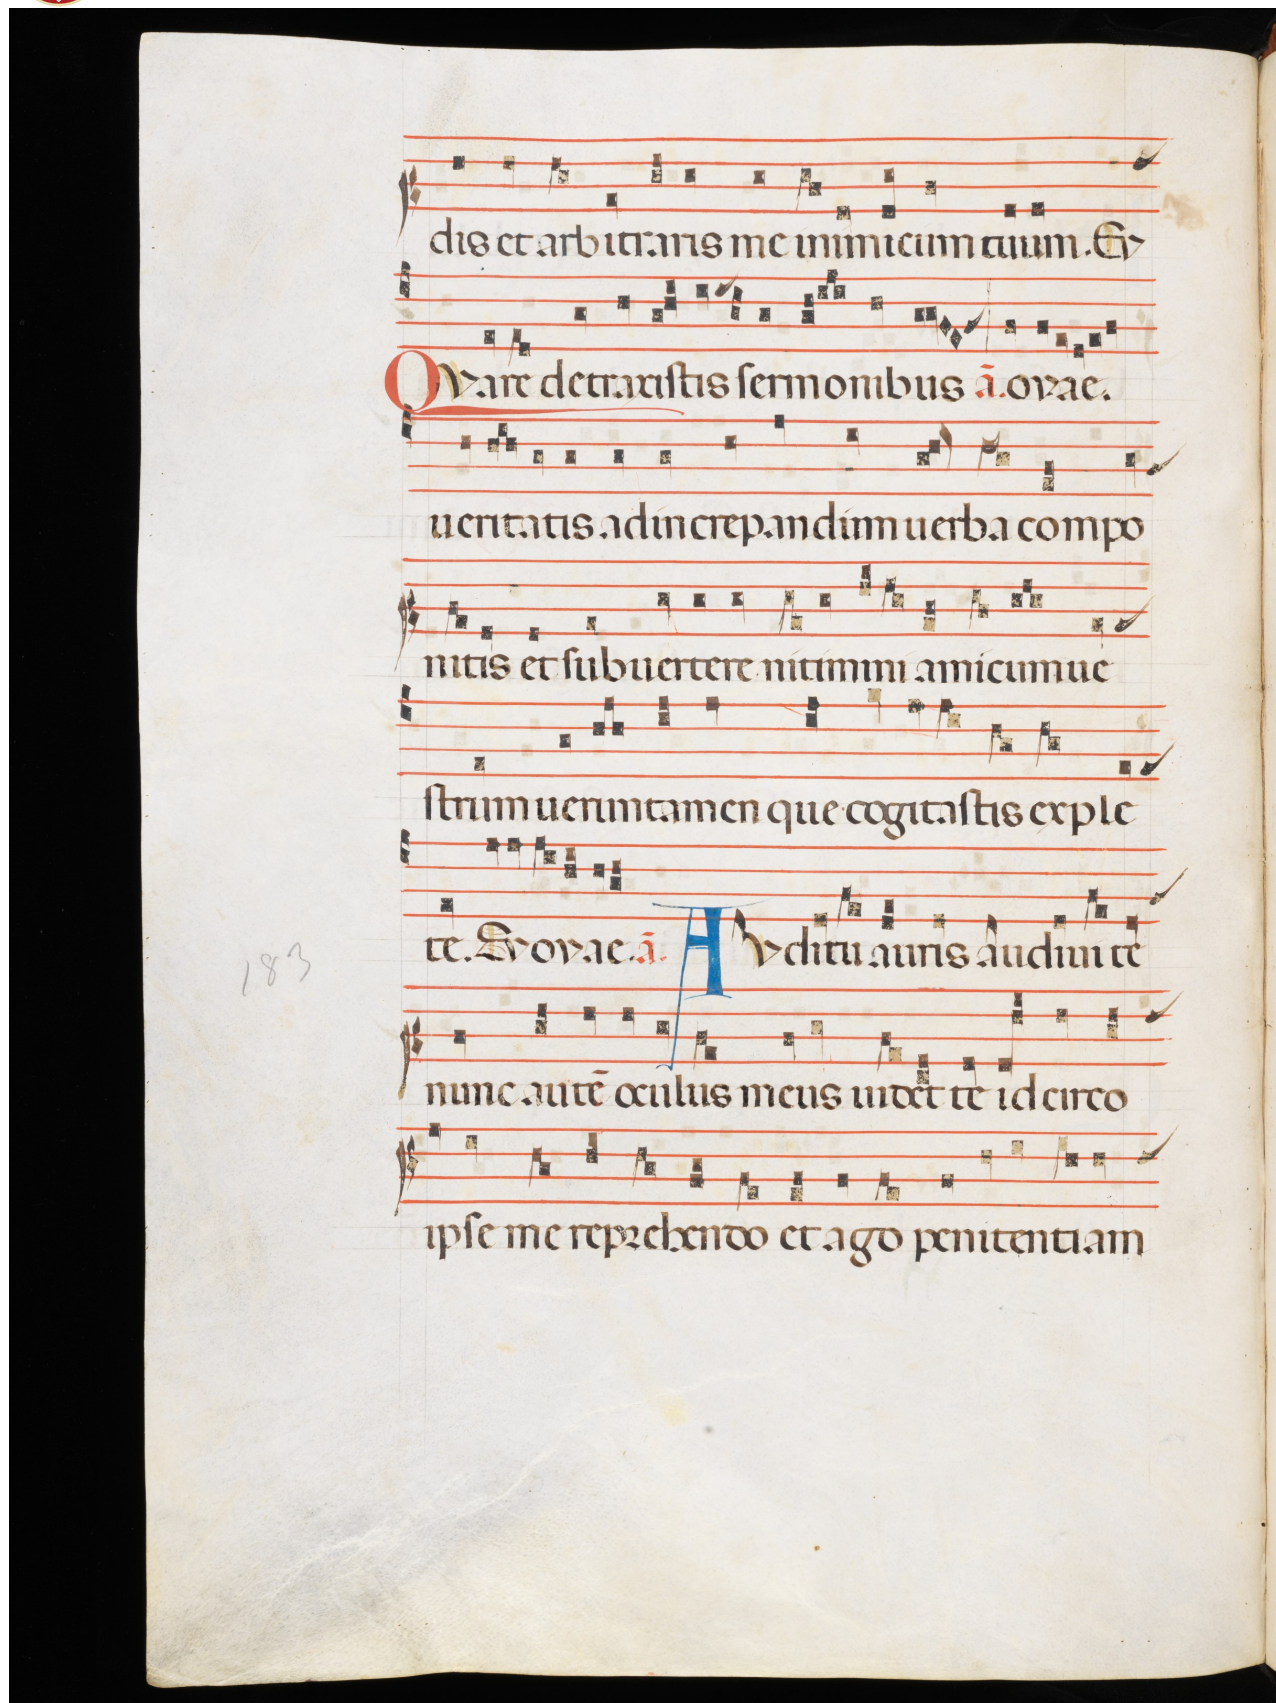 dis et arbitraris me inimicum tuum. Ev
Qvare detraxistis sermonibus ã. ovae.
ueritatis ad increpandum uerba compo
nitis et subuertere nitimini amicum ue
strum ueruntamen que cogitastis exple
te. Evovae. ã. Avditu auris audiui te
183
nunc autē oculus meus uidet te idcirco
ipse me reprehendo et ago penitentiam